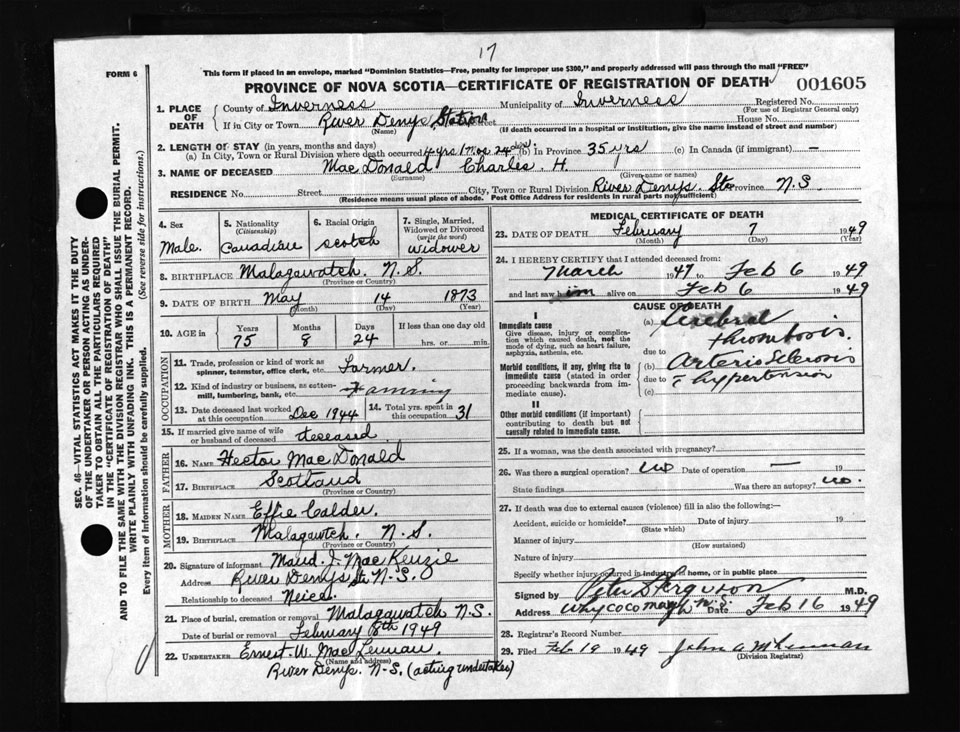 17
FORM 6
This form if placed in an envelope, marked "Dominion Statistics—Free, penalty for improper use $300," and properly addressed will pass through the mail "FREE"
PROVINCE OF NOVA SCOTIA—CERTIFICATE OF REGISTRATION OF DEATH 001605
1. PLACE OF DEATH
County of Inverness Municipality of Inverness Registered No.
(For use of Registrar General only)
If in City or Town River Denys Station Street House No.
(Name) (If death occurred in a hospital or institution, give the name instead of street and number)
2. LENGTH OF STAY (in years, months and days)
(a) In City, Town or Rural Division where death occurred 4 yrs 1 mos 24 days (b) In Province 35 yrs (c) In Canada (if immigrant) —
3. NAME OF DECEASED MacDonald Charles. H.
(Surname) (Given name or names)
RESIDENCE No. Street City, Town or Rural Division River Denys. Sta Province N.S.
(Residence means usual place of abode. Post Office Address for residents in rural parts not sufficient)
4. Sex
Male.
5. Nationality
(Citizenship)
Canadian
6. Racial Origin
Scotch
7. Single, Married, Widowed or Divorced
(write the word)
Widower
8. BIRTHPLACE Malagawatch. N.S.
(Province or Country)
9. DATE OF BIRTH May 14 1873
(Month) (Day) (Year)
10. AGE in Years Months Days If less than one day old
75 8 24 hrs. or min.
OCCUPATION
11. Trade, profession or kind of work as spinner, teamster, office clerk, etc. Farmer.
12. Kind of industry or business, as cotton-mill, lumbering, bank, etc. Farming
13. Date deceased last worked at this occupation Dec 1944 14. Total yrs. spent in this occupation 31
15. If married give name of wife or husband of deceased deceased
FATHER
16. NAME Hector MacDonald
17. BIRTHPLACE Scotland
(Province or Country)
MOTHER
18. MAIDEN NAME Effie Calder.
19. BIRTHPLACE Malagawtch. N.S.
(Province or Country)
20. Signature of informant Maud. J. MacKenzie
Address River Denys Sta. N.S.
Relationship to deceased Neice.
21. Place of burial, cremation or removal Malagawatch N.S.
Date of burial or removal February 8th 1949
22. UNDERTAKER Ernest W. MacLennan
(Name and address)
River Denys. N-S. (acting undertaker)
MEDICAL CERTIFICATE OF DEATH
23. DATE OF DEATH February 7 1949
(Month) (Day) (Year)
24. I HEREBY CERTIFY that I attended deceased from:
March 1947 to Feb 6 1949
and last saw him alive on Feb 6 1949
CAUSE OF DEATH
I
Immediate cause
Give disease, injury or complication which caused death, not the mode of dying, such as heart failure, asphyxia, asthenia, etc.
(a) Cerebral thrombosis.
due to
Morbid conditions, if any, giving rise to immediate cause (stated in order proceeding backwards from immediate cause)
(b) Arteriosclerosis
due to hypertension
(c)
II
Other morbid conditions (if important) contributing to death but not causally related to immediate cause.
25. If a woman, was the death associated with pregnancy?
26. Was there a surgical operation? no Date of operation — 19
State findings Was there an autopsy? no.
27. If death was due to external causes (violence) fill in also the following:—
Accident, suicide or homicide? Date of injury 19
(State which)
Manner of injury
(How sustained)
Nature of injury
Specify whether injury occurred in industry, in home, or in public place
Signed by Peter S Ferguson M.D.
Address Whycocomagh N.S. Date Feb 16 1949
28. Registrar's Record Number
29. Filed Feb 19 1949 John A McLennan
(Division Registrar)
SEC. 46—VITAL STATISTICS ACT MAKES IT THE DUTY
OF THE UNDERTAKER OR PERSON ACTING AS UNDER-
TAKER TO OBTAIN ALL THE PARTICULARS REQUIRED
IN THE "CERTIFICATE OF REGISTRATION OF DEATH"
AND TO FILE THE SAME WITH THE DIVISION REGISTRAR WHO SHALL ISSUE THE BURIAL PERMIT.
WRITE PLAINLY WITH UNFADING INK. THIS IS A PERMANENT RECORD.
Every item of information should be carefully supplied. (See reverse side for instructions.)